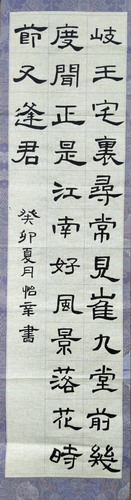 岐王宅裏尋常見崔九堂前幾
度聞正是江南好風景落花時
節又逢君
癸卯夏月怡章書